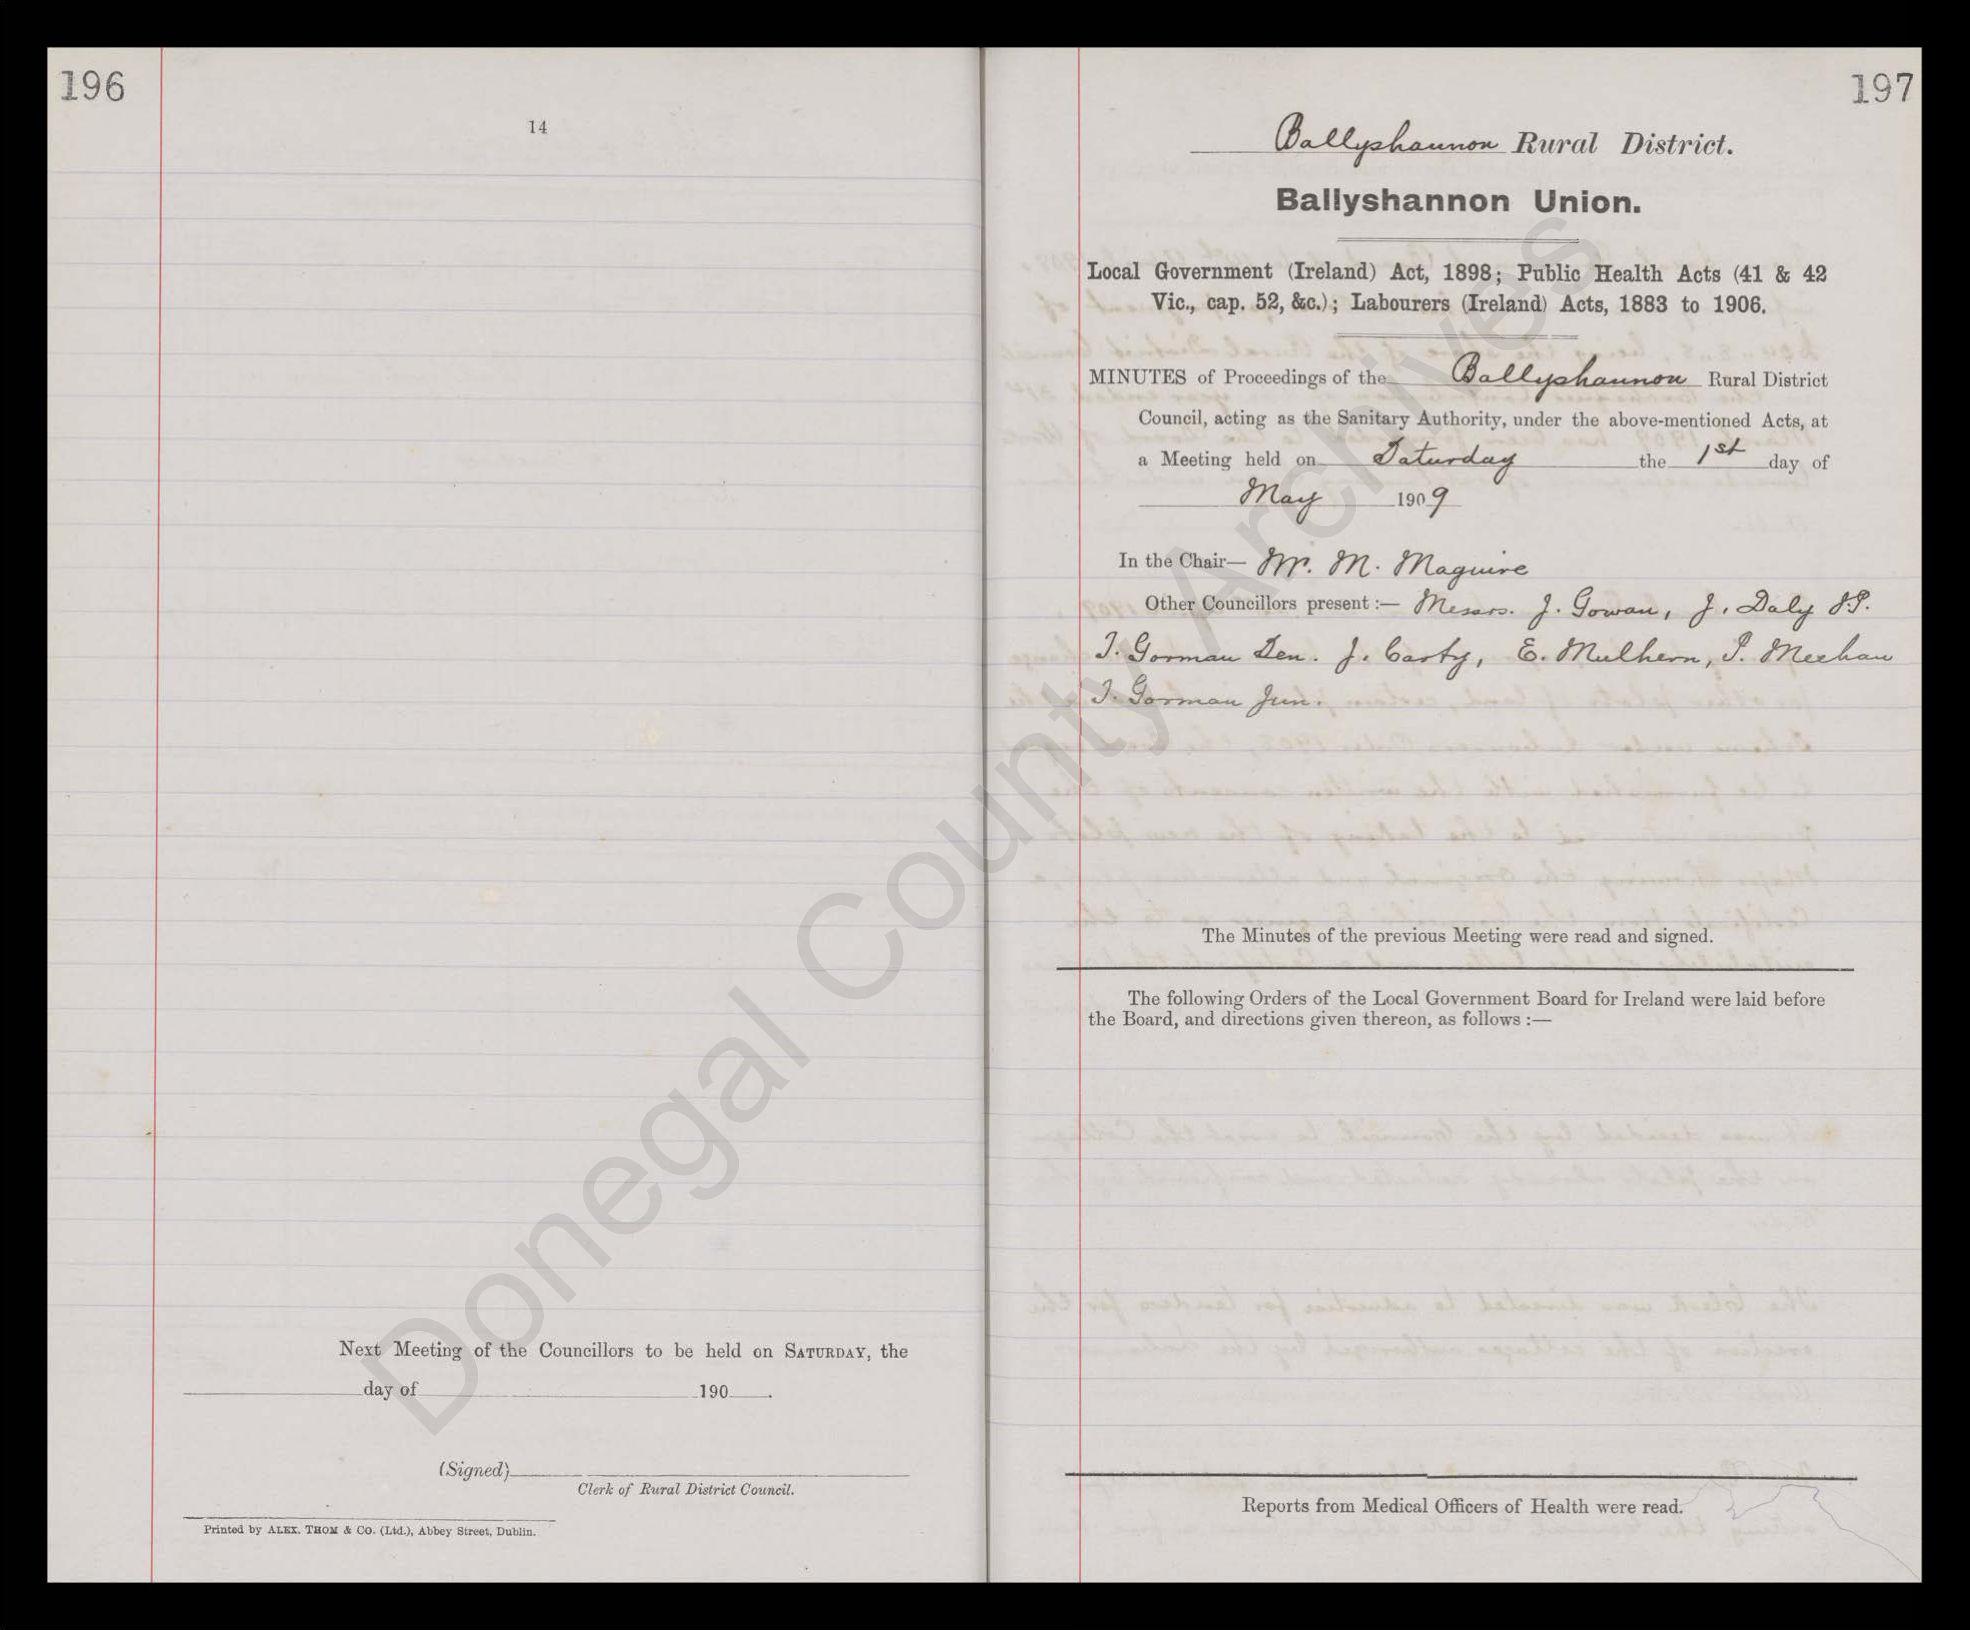 196
14
Next Meeting of the Councillors to be held on SATURDAY, the
day of 190 .
(Signed)
Clerk of Rural District Council.
Printed by ALEX. THOM & CO. (Ltd.), Abbey Street, Dublin.
197
Ballyshannon Rural District.
Ballyshannon Union.
Local Government (Ireland) Act, 1898; Public Health Acts (41 & 42
Vic., cap. 52, &c.); Labourers (Ireland) Acts, 1883 to 1906.
MINUTES of Proceedings of the Ballyshannon Rural District
Council, acting as the Sanitary Authority, under the above-mentioned Acts, at
a Meeting held on Saturday the 1st day of
May 1909
In the Chair— Mr. M. Maguire
Other Councillors present :— Messrs. J. Gowan, J. Daly J.P.
T. Gorman Sen. J. Carty, E. Mulhern, P. Meehan
T. Gorman Jun.
The Minutes of the previous Meeting were read and signed.
The following Orders of the Local Government Board for Ireland were laid before
the Board, and directions given thereon, as follows :—
Reports from Medical Officers of Health were read.
Donegal County Archives